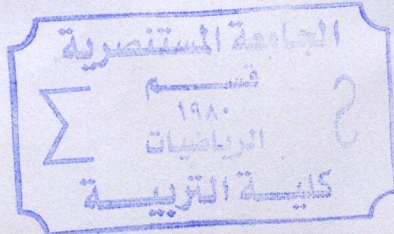 الجامعة المستنصرية
قسم
١٩٨٠
الرياضيات
كلية التربية
Σ